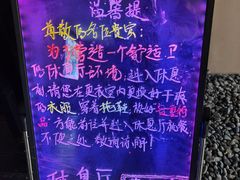 温馨提
尊敬的各位贵宾:
为了营造一个舒适卫
的休息厅环境,进入休息
前,请您在更衣室内更换好干爽
的衣服,穿着拖鞋,放好
品,方能前往并进入休息厅,若有
不便之处,敬请谅解!
休息厅